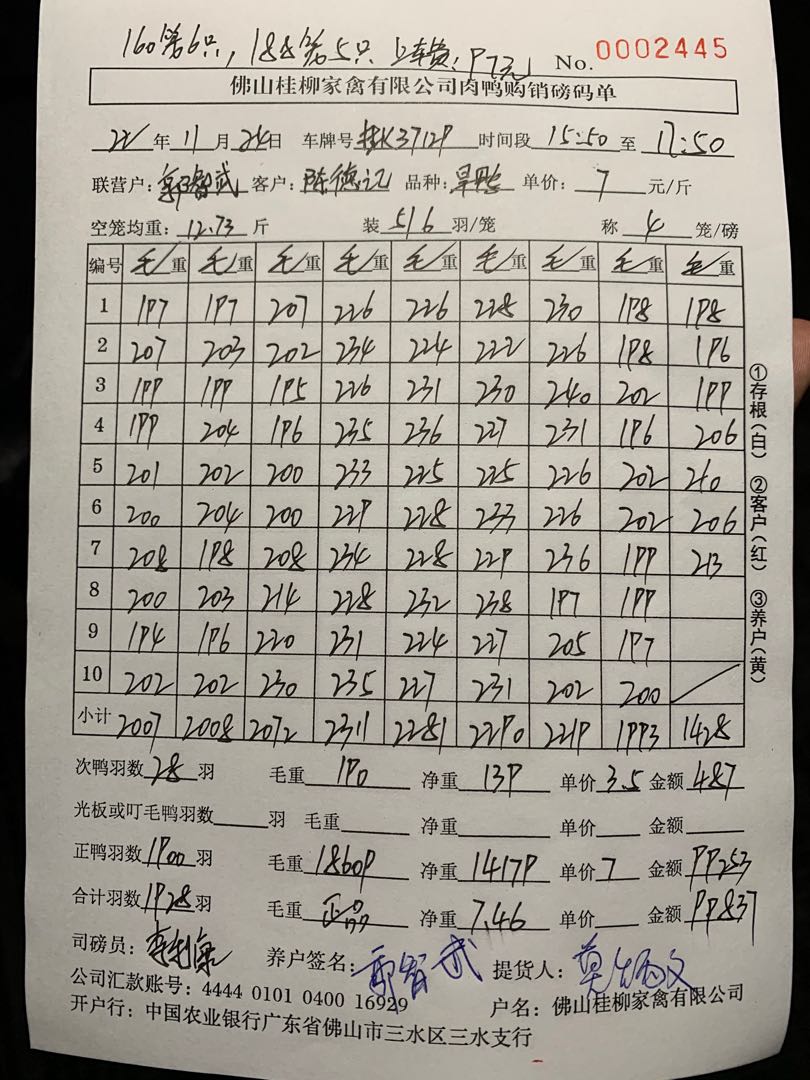 160笼6只，188笼5只 上车费：97元 No. 0002445
佛山桂柳家禽有限公司肉鸭购销磅码单
22年11月24日 车牌号桂K37129 时间段15:50至17:50
联营户：郭智武 客户：陈德记 品种：旱鸭 单价：7元/斤
空笼均重：12.73斤 装5/6羽/笼 称4笼/磅
编号 毛/重 毛/重 毛/重 毛/重 毛/重 毛/重 毛/重 毛/重 毛/重
1 197 197 207 226 226 228 230 198 198
2 207 203 202 234 224 222 226 198 196
3 199 199 195 226 231 230 240 202 199
4 199 204 196 235 236 227 231 196 206
5 201 202 200 233 225 225 226 202 210
6 200 204 200 229 228 233 226 202 206
7 208 198 208 234 228 229 236 199 213
8 200 203 214 228 232 238 197 199
9 194 196 220 231 224 227 205 197
10 202 202 230 235 227 231 202 200
小计 2007 2008 2072 2311 2281 2290 2219 1993 1428
①存根(白) ②客户(红) ③养户(黄)
次鸭羽数28羽 毛重190 净重139 单价3.5金额487
光板或叮毛鸭羽数 羽 毛重 净重 单价 金额
正鸭羽数1900羽 毛重18609 净重14179 单价7 金额99253
合计羽数1928羽 毛重正品 净重7.46 单价 金额99837
司磅员： 养户签名：郭智武 提货人：
公司汇款账号：4444 0101 0400 16929 户名：佛山桂柳家禽有限公司
开户行：中国农业银行广东省佛山市三水区三水支行